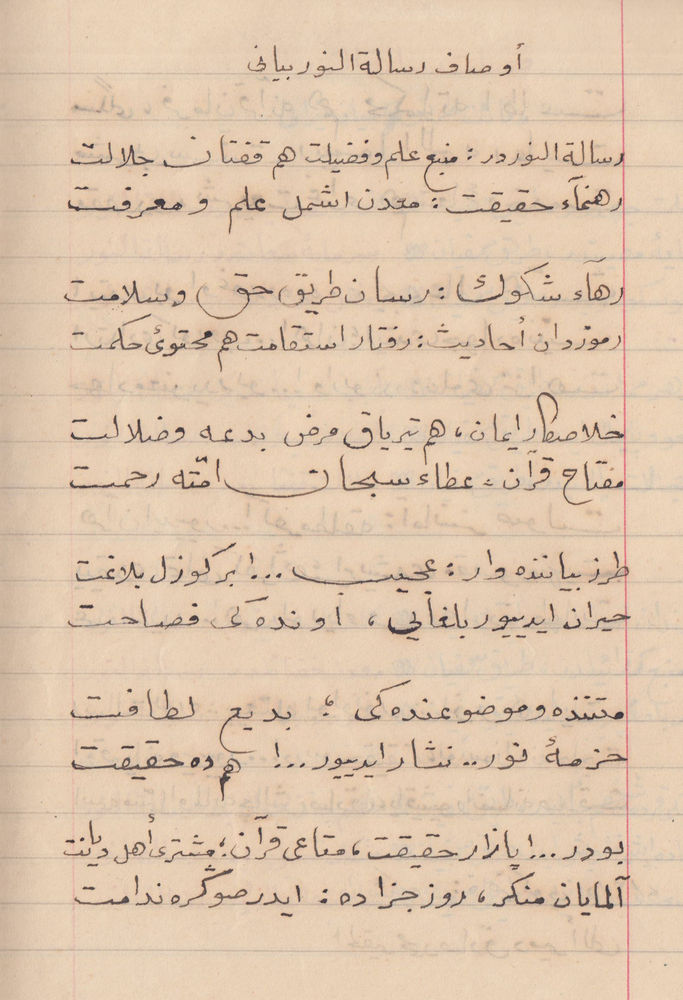 أوصاف رسالة النور بيانى
رسالة النوردر : منبع علم وفضيلت هم قفتان جلالت
رهنمآء حقيقت : معدن اشمل علم و معرفت
رهآء شكوك : رسان طريق حق وسلامت
رموزدان أحاديث : رفتار استقامت هم محتوئ حكمت
خلاصكار ايمان ، هم ترياق مرض بدعه وضلالت
مفتاح قرآن ، عطاء سبحان امّته رحمت
طرز بياننده وار : عجيب ...! بر كوزل بلاغت
حيران ايدييور بلغاىي ، اونده كى فصاحت
متننده و موضوعنده كى ؛ بديع لطافت
حزمۀ نور .. نشار ايدييور ...! هم ده حقيقت
بودر ...! پازار حقيقت ، متاعى قرآن ؛ مشترى أهل ديانت
آلمايان منكر ، روز جزاده : ايدر صوكره ندامت